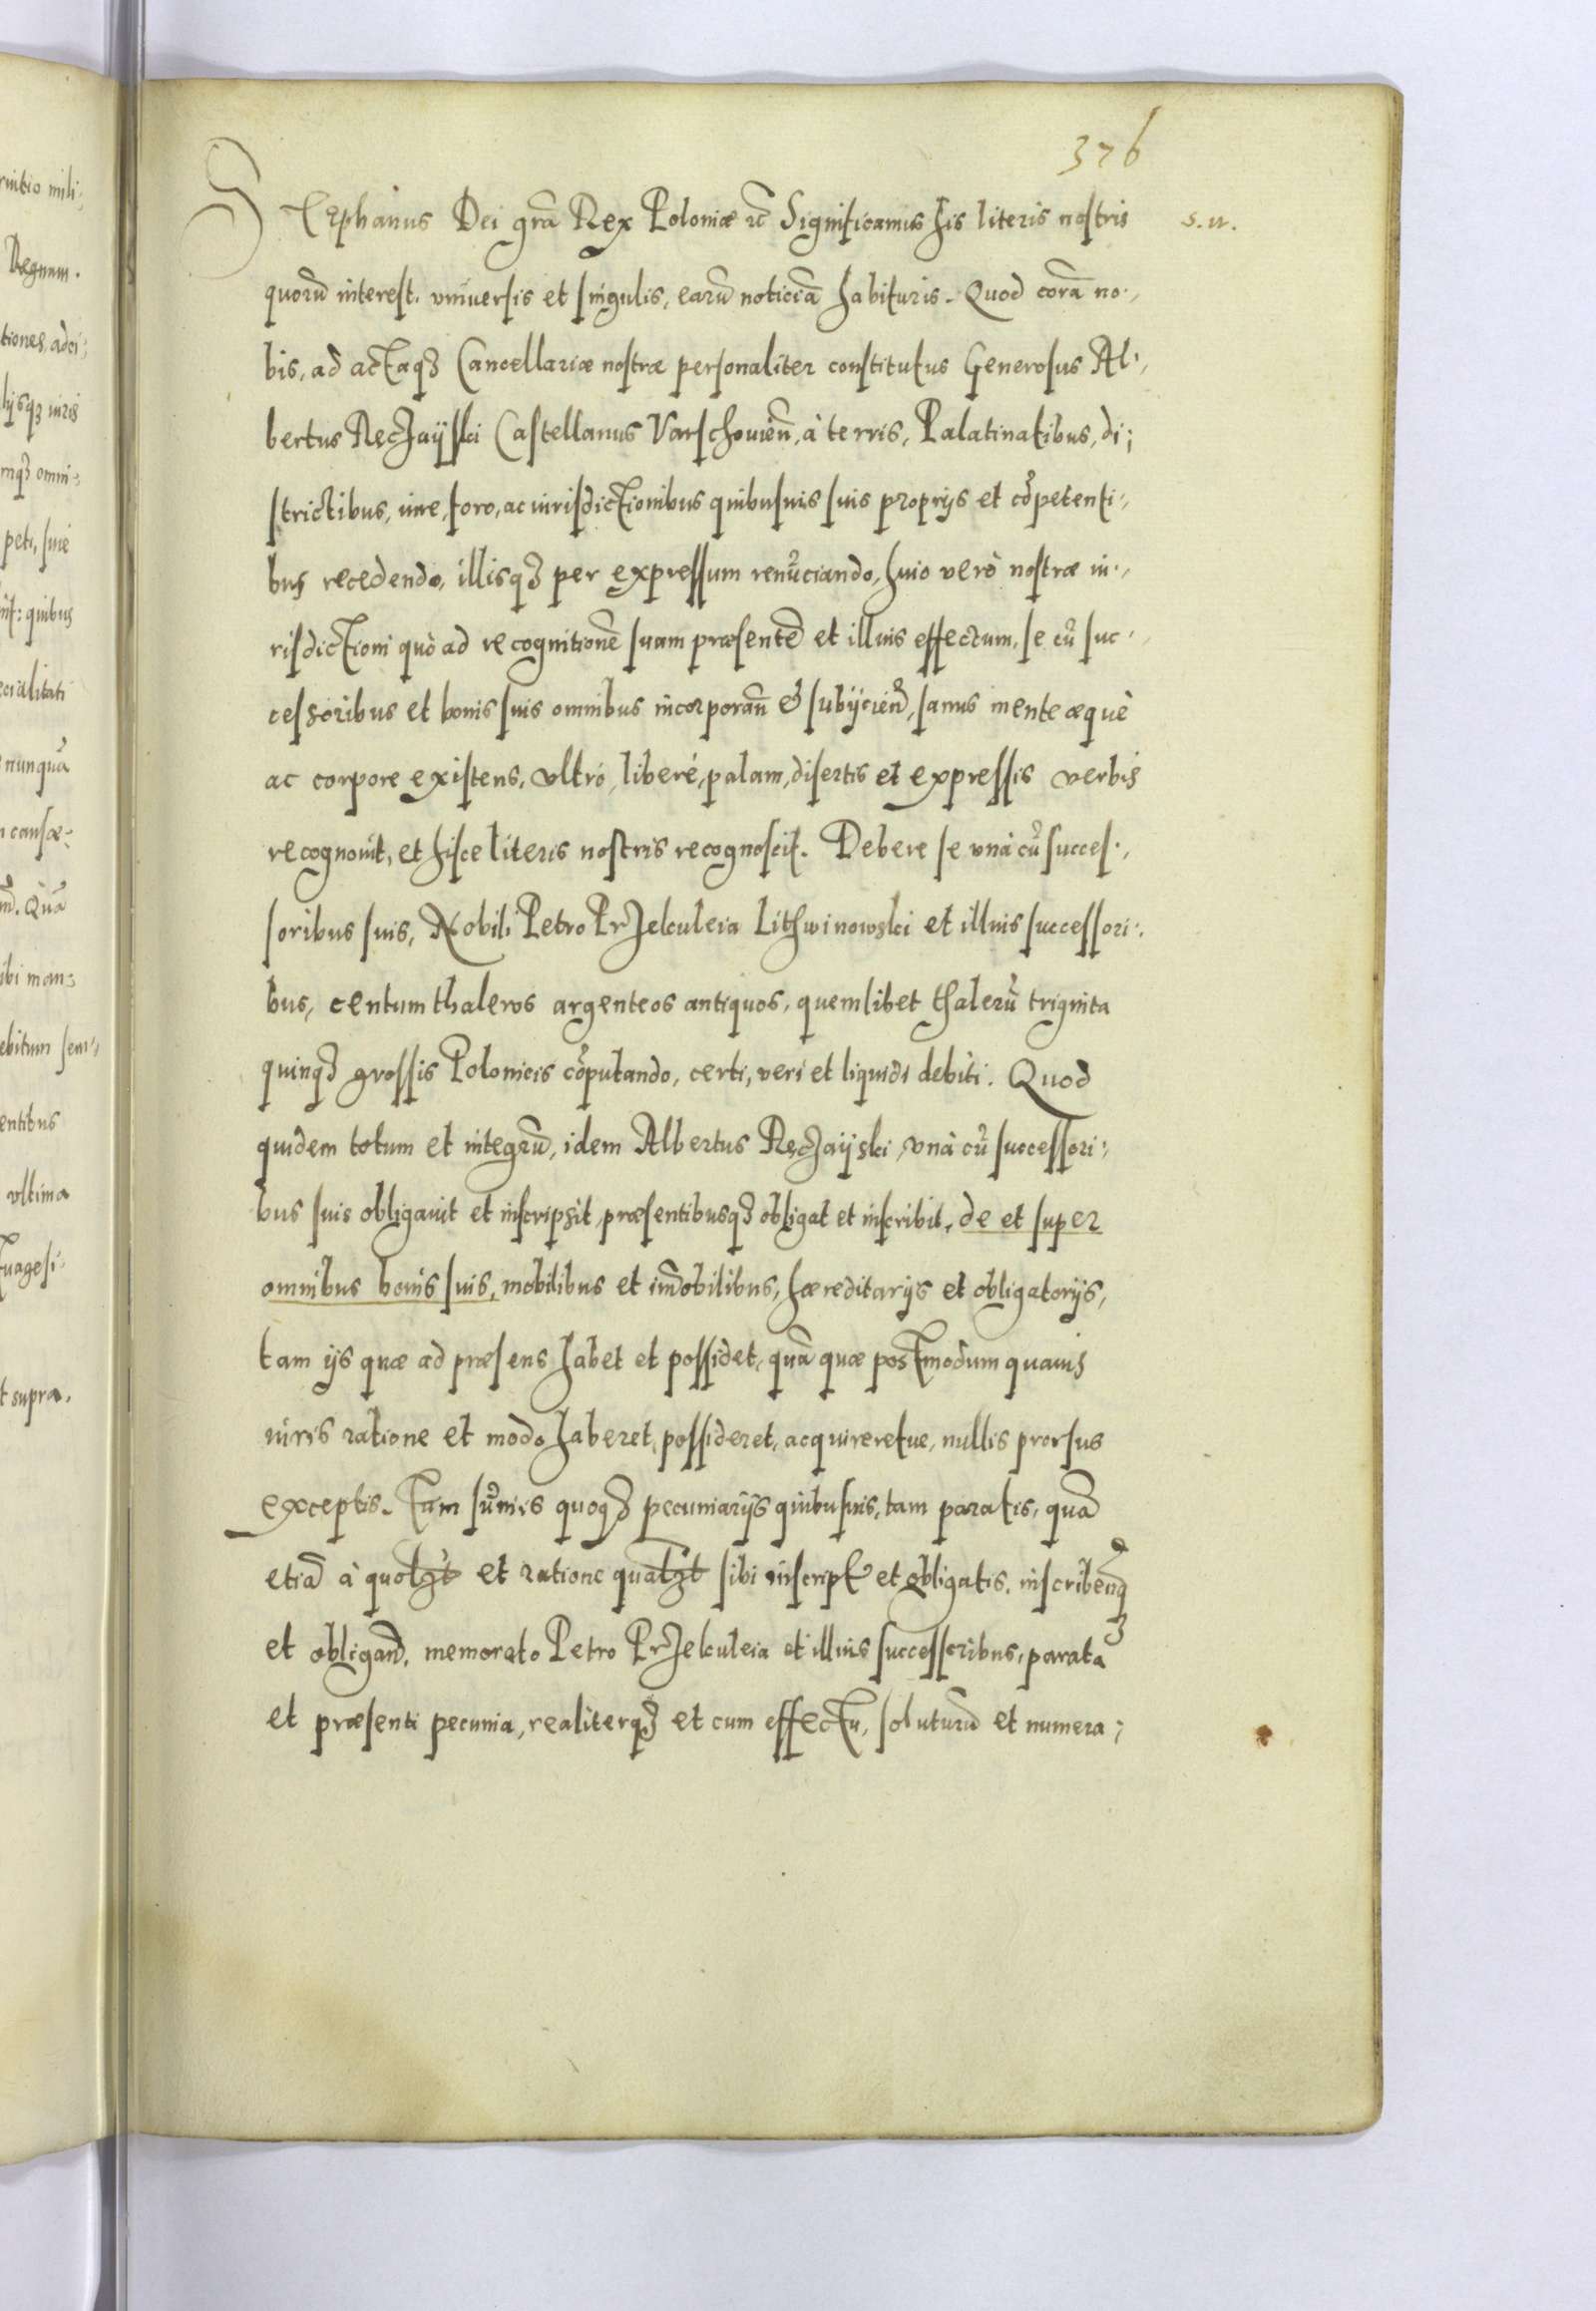 376
Stephanus Dei grã Rex Poloniæ rc̃ Significamus his literis nostris
s. n.
quorũ interest. vniuersis et singulis, earũ noticiã habituris. Quod corã no⸗
bis, ad actaqꝫ Cancellariæ nostræ personaliter constitutus Generosus Al⸗
bertus Recżaijski Castellanus Varschouieñ, à terris, Palatinatibus, di⸗
strictibus, iure, foro, ac iurisdictionibus quibusuis suis proprijs et cõpetenti⸗
bus recedendo, illisqꝫ per expressum renũciando, huic verò nostræ iu⸗
risdictioni quò ad recognitionẽ suam præsentẽ et illius effectum, se cũ suc⸗
cessoribus et bonis suis omnibus incorporañ & subijcieñd, sanus mente æquè
ac corpore existens, vltrò, liberè, palam, disertis et expressis verbis
recognouit, et hisce literis nostris recognoscit. Debere se vnà cũ succes⸗
soribus suis, Nobili Petro Przekuleia Lithwinowski et illius successori⸗
bus, centum thaleros argenteos antiquos, quemlibet thalerũ triginta
quinqꝫ grossis Polonicis cõputando, certi, veri et liquidi debiti. Quod
quidem totum et integrũ, idem Albertus Recżaijski, vnà cũ successori⸗
bus suis obligauit et inscripsit, præsentibusqꝫ obligat et inscribit, de et super
omnibus bonis suis, mobilibus et im̃obilibus, hæreditarijs et obligatorijs,
tam ijs quæ ad præsens habet et possidet, quã quæ postmodum quauis
iuris ratione et modo haberet, possideret, acquireretue, nullis prorsus
exceptis. Tum sũmis quoqꝫ pecuniarijs quibusuis, tam paratis, quã
etiã à quolꝫt et ratione qualꝫt sibi inscript. et obligatis, inscribeñdqꝫ
et obligañd, memorato Petro Przekuleia et illius successoribus, parata
et præsenti pecunia, realiterqꝫ et cum effectu, soluturũ et numera⸗